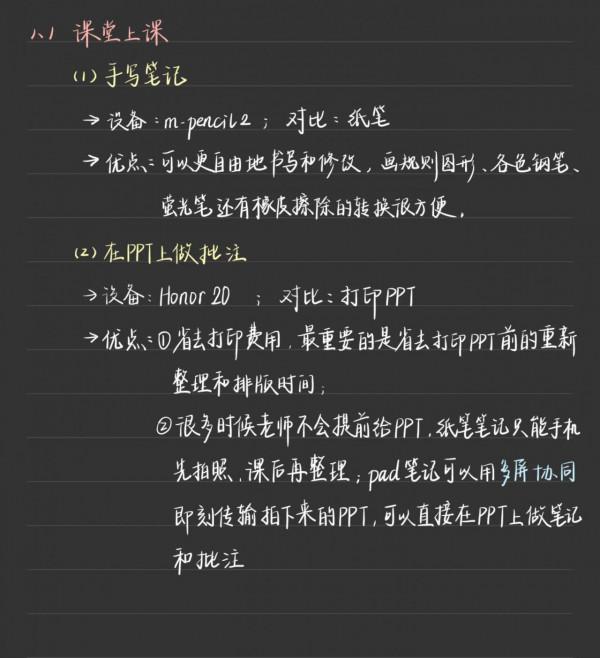 1.1 课堂上课
(1) 手写笔记
→ 设备：m-pencil2 ； 对比：纸笔
→ 优点：可以更自由地书写和修改，画规则图形、各色钢笔、
萤光笔还有橡皮擦除的转换很方便。
(2) 在PPT上做批注
→ 设备：Honor 20 ； 对比：打印PPT
→ 优点：①省去打印费用，最重要的是省去打印PPT前的重新
整理和排版时间；
②很多时候老师不会提前给PPT，纸笔笔记只能手机
先拍照、课后再整理；pad笔记可以用多屏协同
即刻传输拍下来的PPT，可以直接在PPT上做笔记
和批注